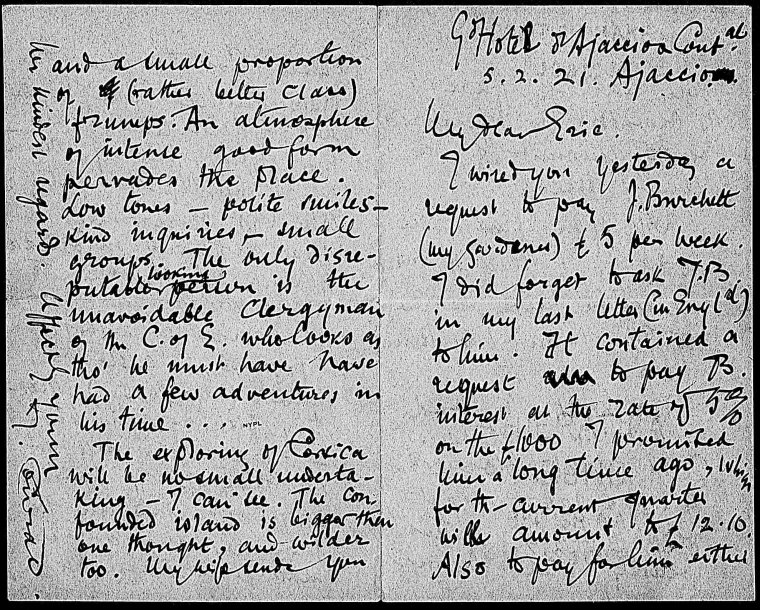 Gd Hotel d'Ajaccio & Contal
5.2.21. Ajaccio
My dear Eric.
I wired you yesterday a
request to pay J. Burchett
(my gardener) £5 per week.
I did forget to ask J.B.
in my last letter (in Engld)
to him. It contained a
request to pay B.
interest at the rate of 5%
on the £1000 I promised
him a long time ago, which
for the current quarter
will amount to £12.10.
Also to pay for him either
and a small proportion
of (rather better class)
frumps. An atmosphere
of intense good form
pervades the place.
Low tones – polite smiles –
kind inquiries – small
groups. The only disre-
putable looking person is the
unavoidable Clergyman
of the C. of E. who looks as
tho' he must have have
had a few adventures in
his time ...
NYPL
The exploring of Corsica
will be no small underta-
king – I can see. The con
founded island is bigger than
one thought, and wilder
too. My wife sends you
her kindest regard. Affectly yours
J. Conrad.